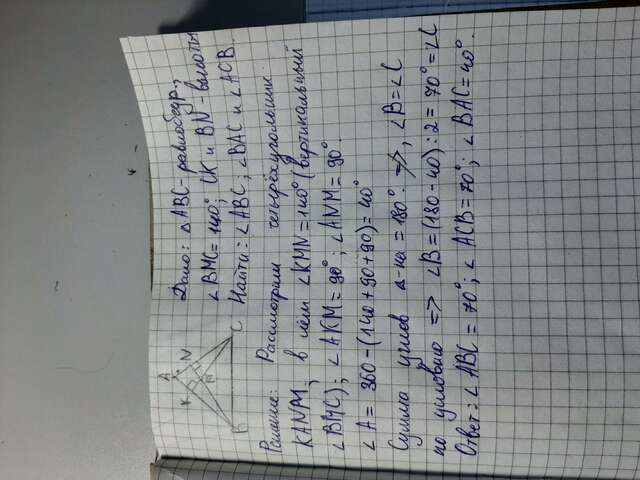 Дано: △ABC-равнобедр.,
∠BMC = 140°; CK и BN-высоты
Найти: ∠ABC; ∠BAC и ∠ACB.
A
K N
M
B C
Решение: Рассмотрим четырёхугольник
KANM, в нём ∠KMN=140° (вертикальный
∠BMC); ∠AKM=90°; ∠ANM=90°.
∠A= 360-(140+90+90)=40°
Сумма углов △-ка = 180° => , ∠B=∠C
по условию => ∠B=(180-40):2=70°=∠C
Ответ: ∠ABC = 70°; ∠ACB=70°; ∠BAC=40°.